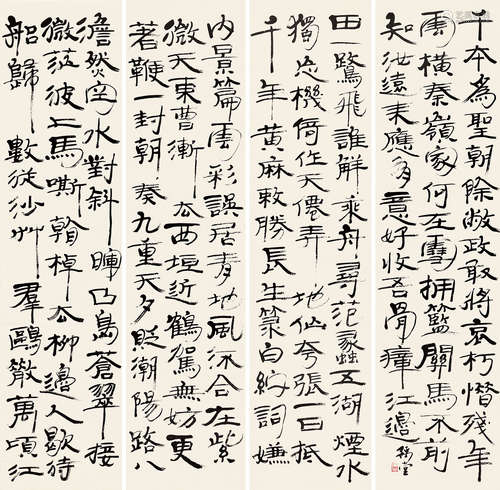 澹然空水對斜暉曲島蒼翠接
微茫波上馬嘶看棹去柳邊人歇待
船歸數叢沙艸羣鷗散萬頃江
田一鷺飛誰解乘舟尋范蠡五湖煙水
獨忘機倚仗天僊弄地仙夸張一日抵
千年黃麻敕勝長生箓白紵詞嫌
內景篇雲彩誤居青地風流合在紫
微天東曹漸去西垣近鶴駕無妨更
著鞭一封朝奏九重天夕貶潮陽路八
千本為聖朝除敝政敢將衰朽惜殘年
雲橫秦嶺家何在雪擁籃關馬不前
知汝遠來應多意好收吾骨瘴江邊